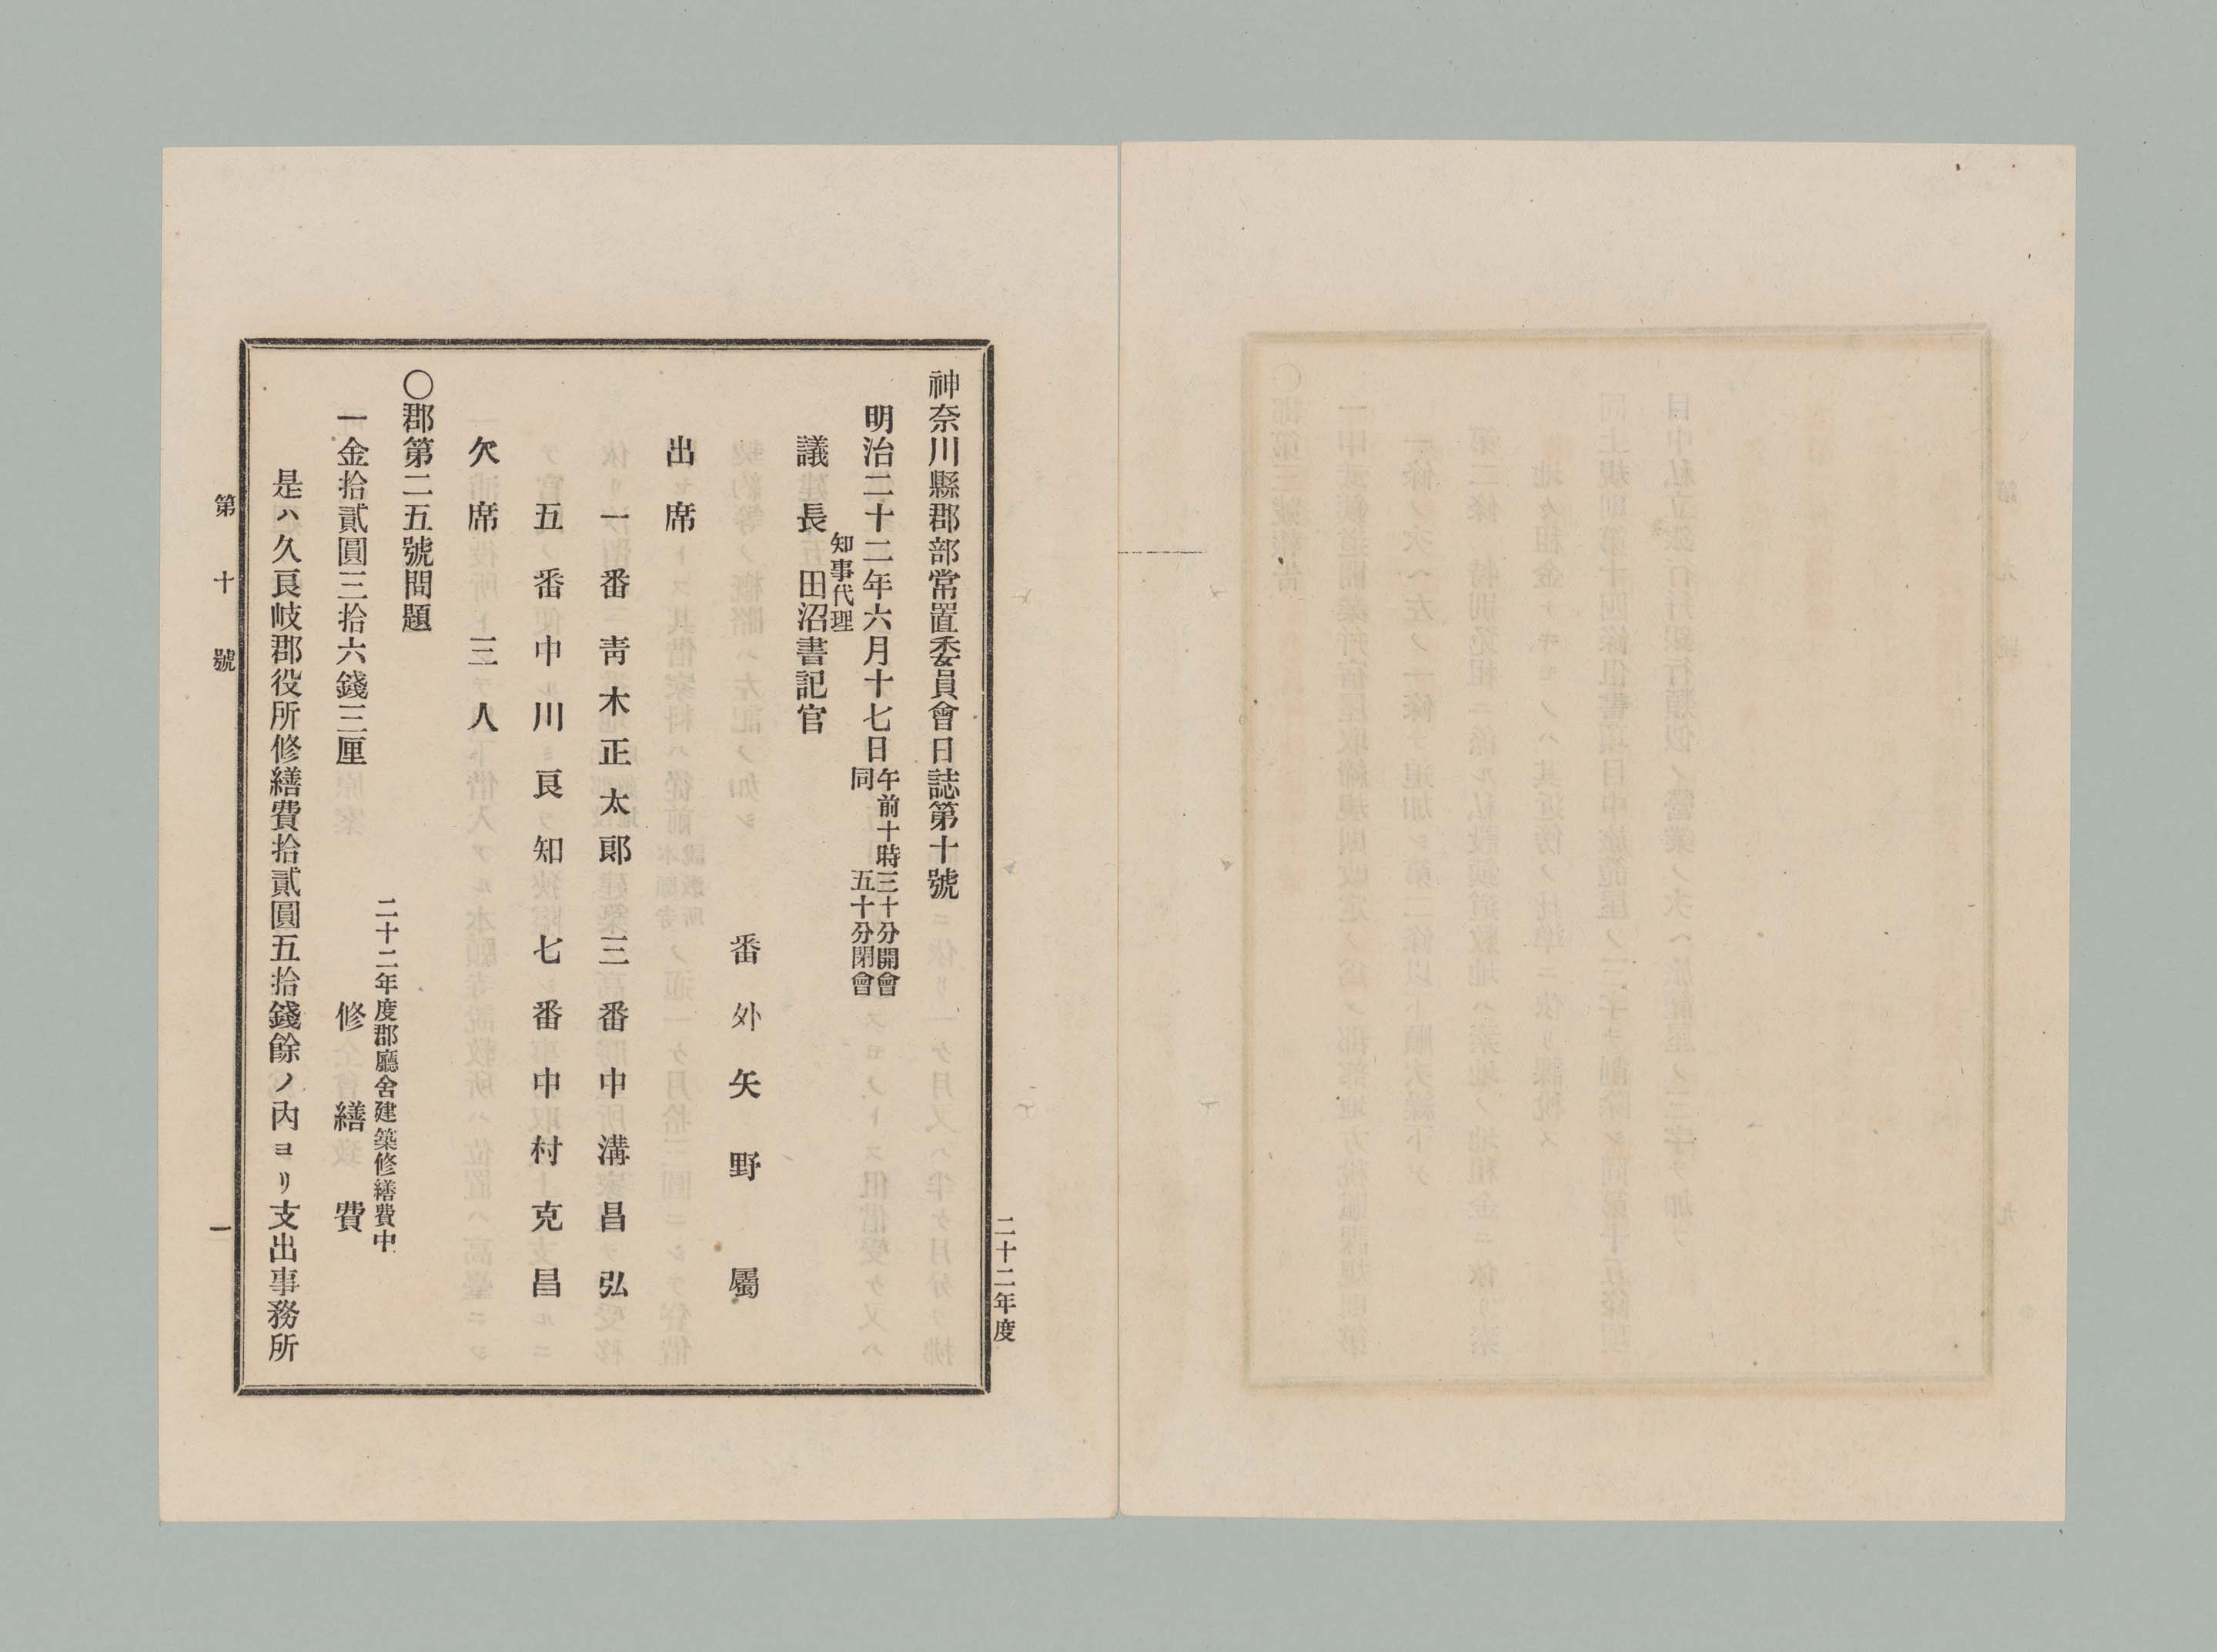 二十二年度
神奈川縣郡部常置委員會日誌第十號
明治二十二年六月十七日午前十時三十分開會
同五十分閉會
議長知事代理田沼書記官
番外矢野屬
出席
一番靑木正太郞三番中溝昌弘
五番中川良知七番中村克昌
欠席三人
〇郡第二五號問題
二十二年度郡廳舍建築修繕費中
一金拾貳圓三拾六錢三厘修繕費
是ハ久良岐郡役所修繕費拾貳圓五拾錢餘ノ内ヨリ支出事務所
第十號
一